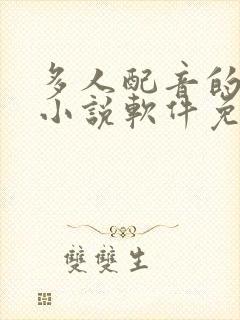 多人配音的
小說軟件免
雙雙生